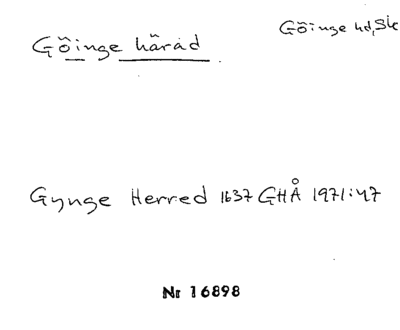 Göinge hd, Sk
Göinge härad
Gynge Herred 1637 GHÅ 1971:47
Nr 16898